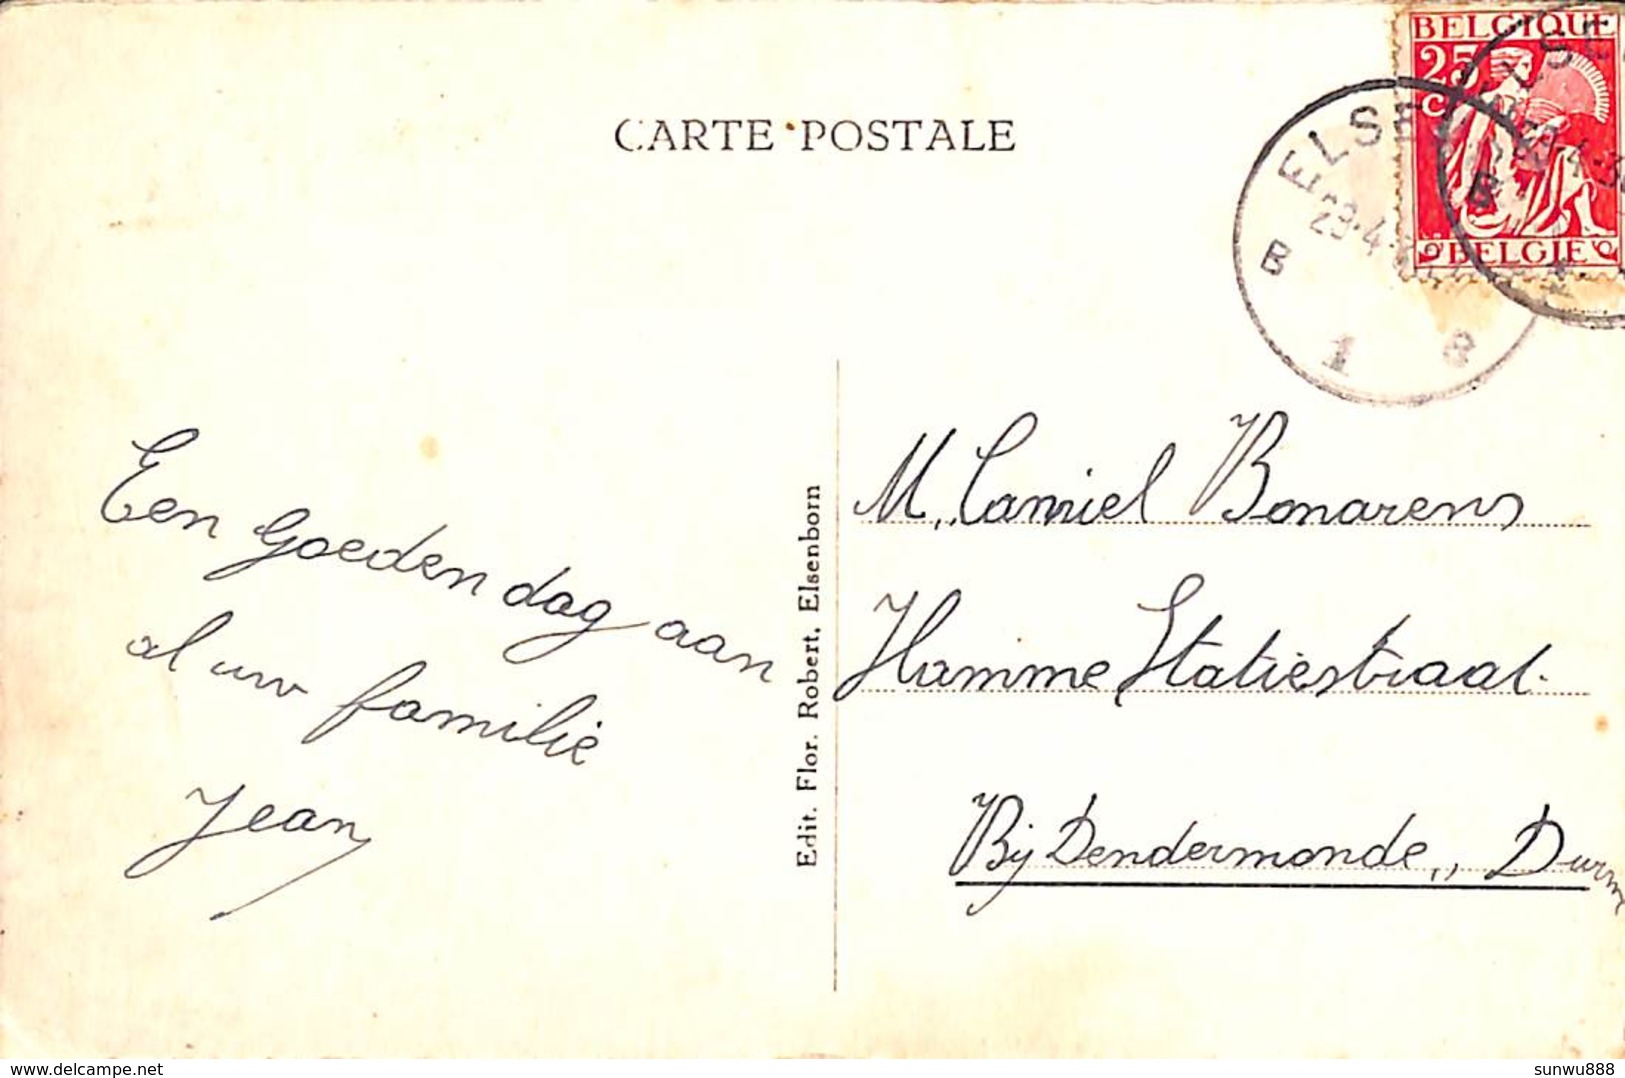 CARTE POSTALE
BELGIQUE
25
C
BELGIE
ELSE
B
1
B
Een goeden dag aan
al uw familie
Jean
Edit. Flor. Robert, Elsenborn
M. Camiel Bonarens
Hamme Statiestraat.
Bij Dendermonde
delcampe.net
sunwu888